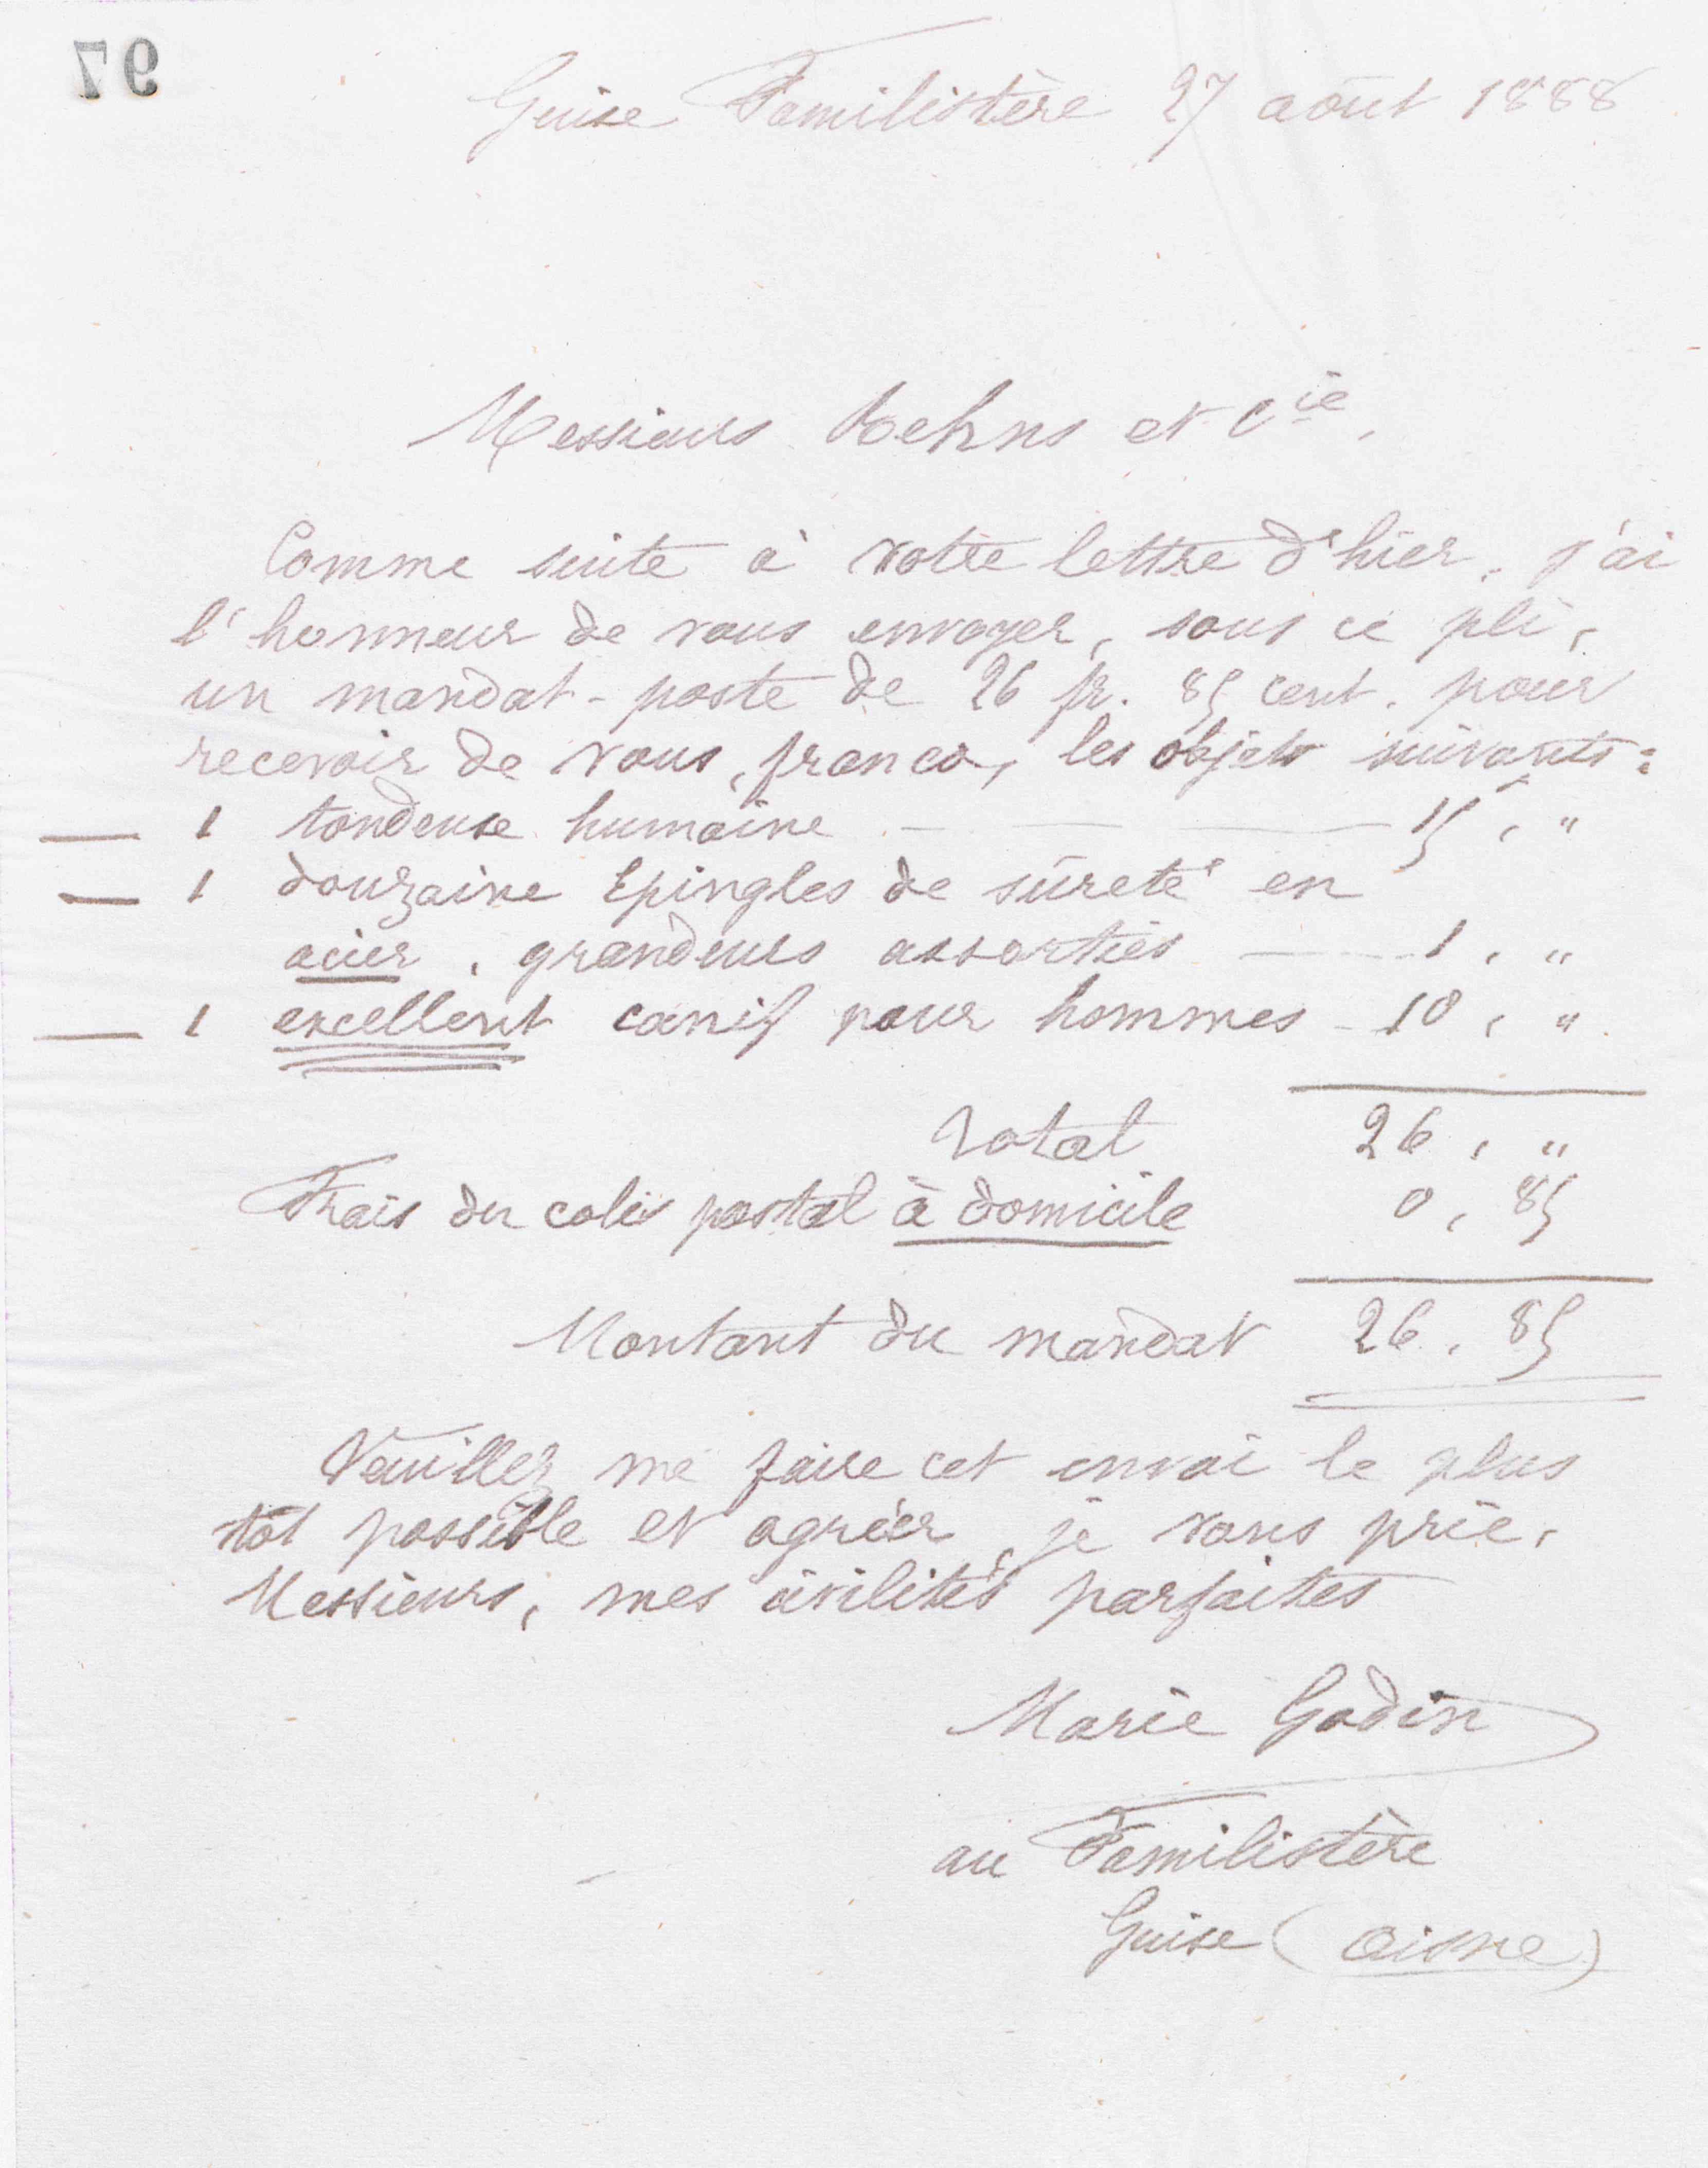 97
Guise Familistère 27 août 1888
Messieurs et Cie,
Comme suite à votre lettre d'hier, j'ai
l'honneur de vous envoyer, sous ce pli,
un mandat-poste de 26 fr. 85 cent. pour
recevoir de vous, franco, les objets suivants :
— 1 tondeuse humaine — — — 15, "
— 1 douzaine Epingles de sûreté en
acier, grandeurs assorties — 1, "
— 1 excellent canif pour hommes - 10, "
Total 26, "
Frais du colis postal à domicile 0, 85
Montant du mandat 26, 85
Veuillez me faire cet envoi le plus
tôt possible et agréer, je vous prie,
Messieurs, mes civilités parfaites
Marie Godin
au Familistère
Guise (Aisne)